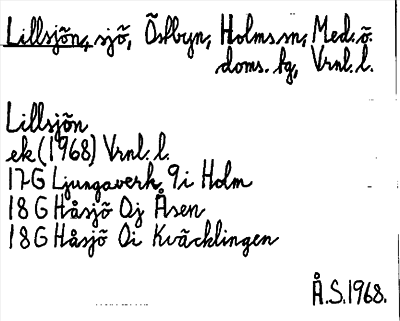 Lillsjön, sjö, Östbyn, Holms sn, Med.ö.
doms. fg, Vrnl. l.
Lillsjön
ek (1968) Vrnl. l.
17G Ljungaverk 9i Holm
18G Håsjö 0j Åsen
18G Håsjö 0i Kväcklingen
Å.S. 1968.